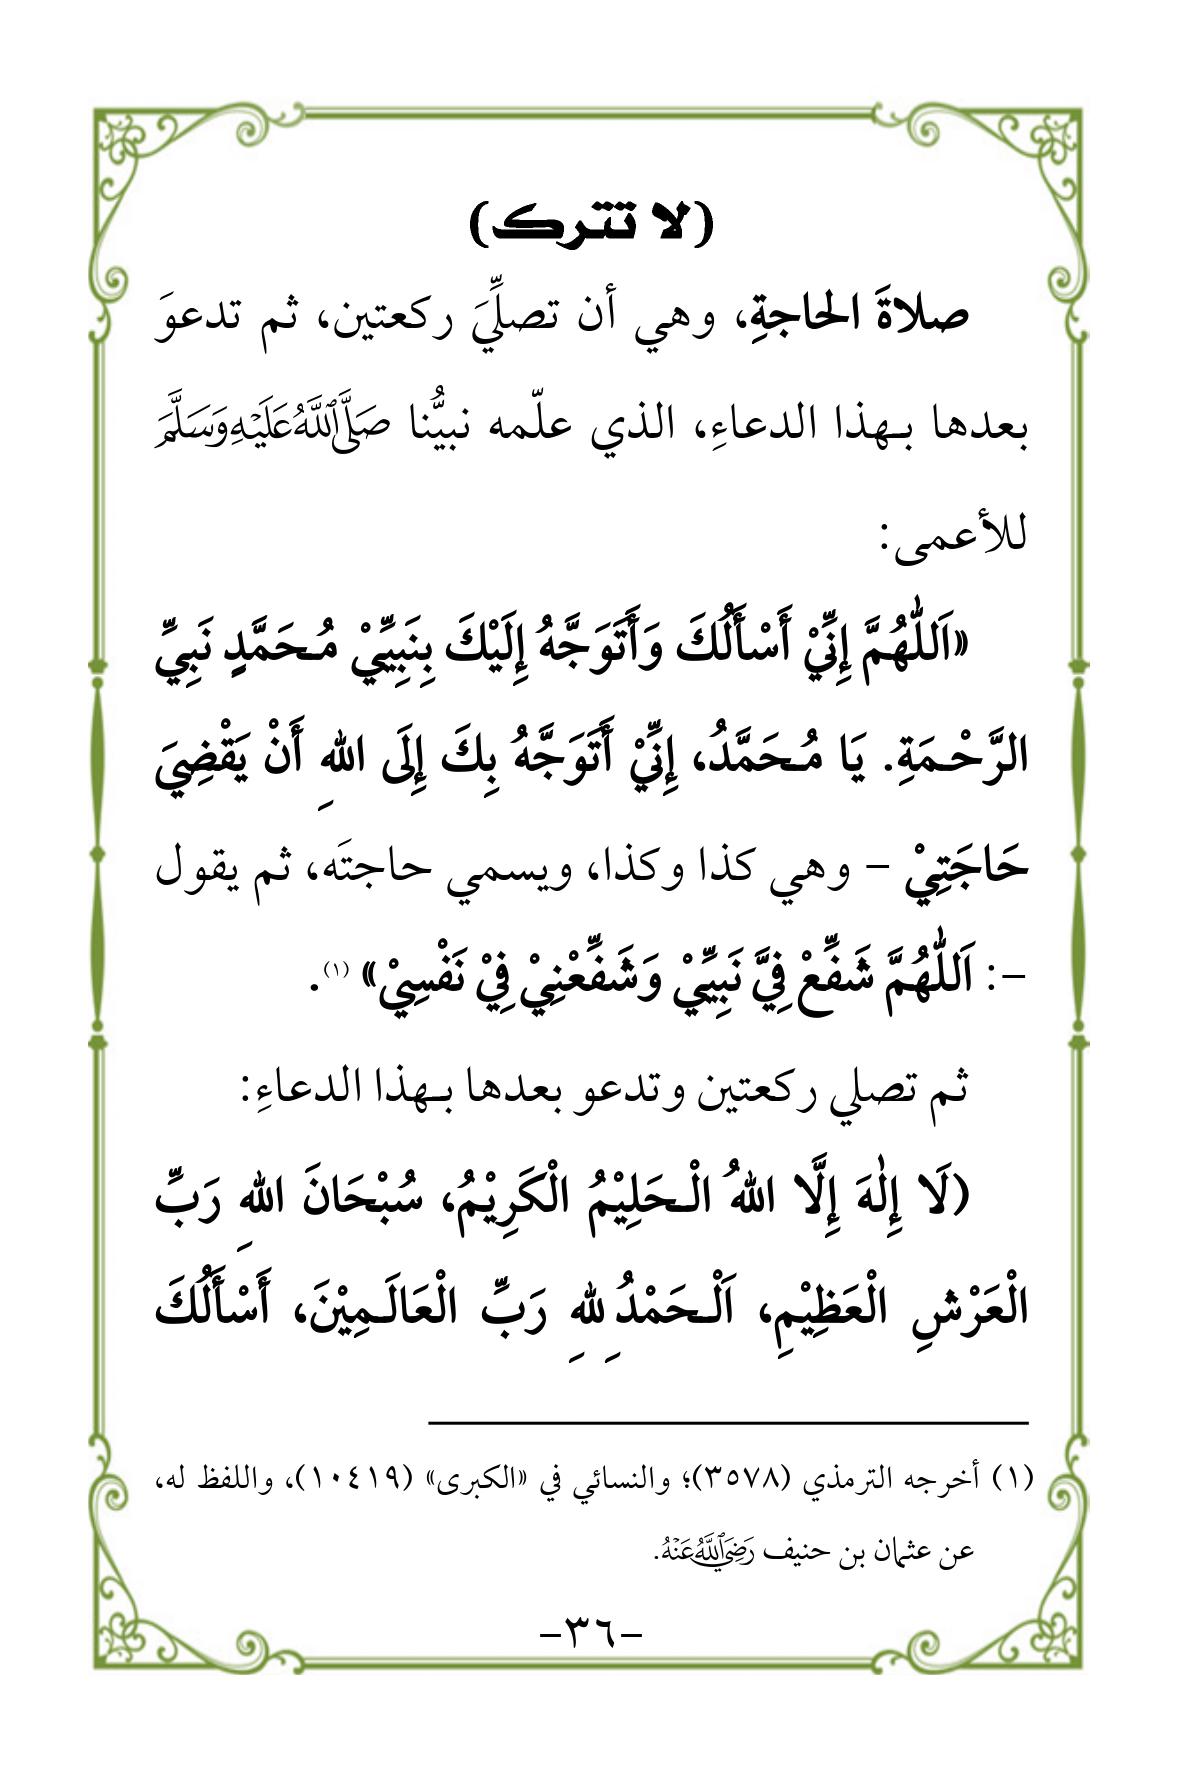 (لا تترك)
صلاةَ الحاجةِ، وهي أن تصلِّيَ ركعتين، ثم تدعوَ
بعدها بـهذا الدعاءِ، الذي علّمه نبيُّنا صَلَّى اللَّهُ عَلَيْهِ وَسَلَّمَ
للأعمى:
«اَللّٰهُمَّ إِنِّيْ أَسْأَلُكَ وَأَتَوَجَّهُ إِلَيْكَ بِنَبِيِّيْ مُـحَمَّدٍ نَبِيِّ
الرَّحْـمَةِ. يَا مُـحَمَّدُ، إِنِّيْ أَتَوَجَّهُ بِكَ إِلَى اللهِ أَنْ يَقْضِيَ
حَاجَتِيْ – وهي كذا وكذا، ويسمي حاجتَه، ثم يقول
–: اَللّٰهُمَّ شَفِّعْ فِيَّ نَبِيِّيْ وَشَفِّعْنِيْ فِيْ نَفْسِيْ» (١).
ثم تصلي ركعتين وتدعو بعدها بـهذا الدعاءِ:
(لَا إِلٰهَ إِلَّا اللهُ الْـحَلِيْمُ الْكَرِيْمُ، سُبْحَانَ اللهِ رَبِّ
الْعَرْشِ الْعَظِيْمِ، اَلْـحَمْدُ لِلهِ رَبِّ الْعَالَـمِيْنَ، أَسْأَلُكَ
(١) أخرجه الترمذي (٣٥٧٨)؛ والنسائي في «الكبرى» (١٠٤١٩)، واللفظ له،
عن عثمان بن حنيف رَضِيَ اللَّهُ عَنْهُ.
–٣٦–